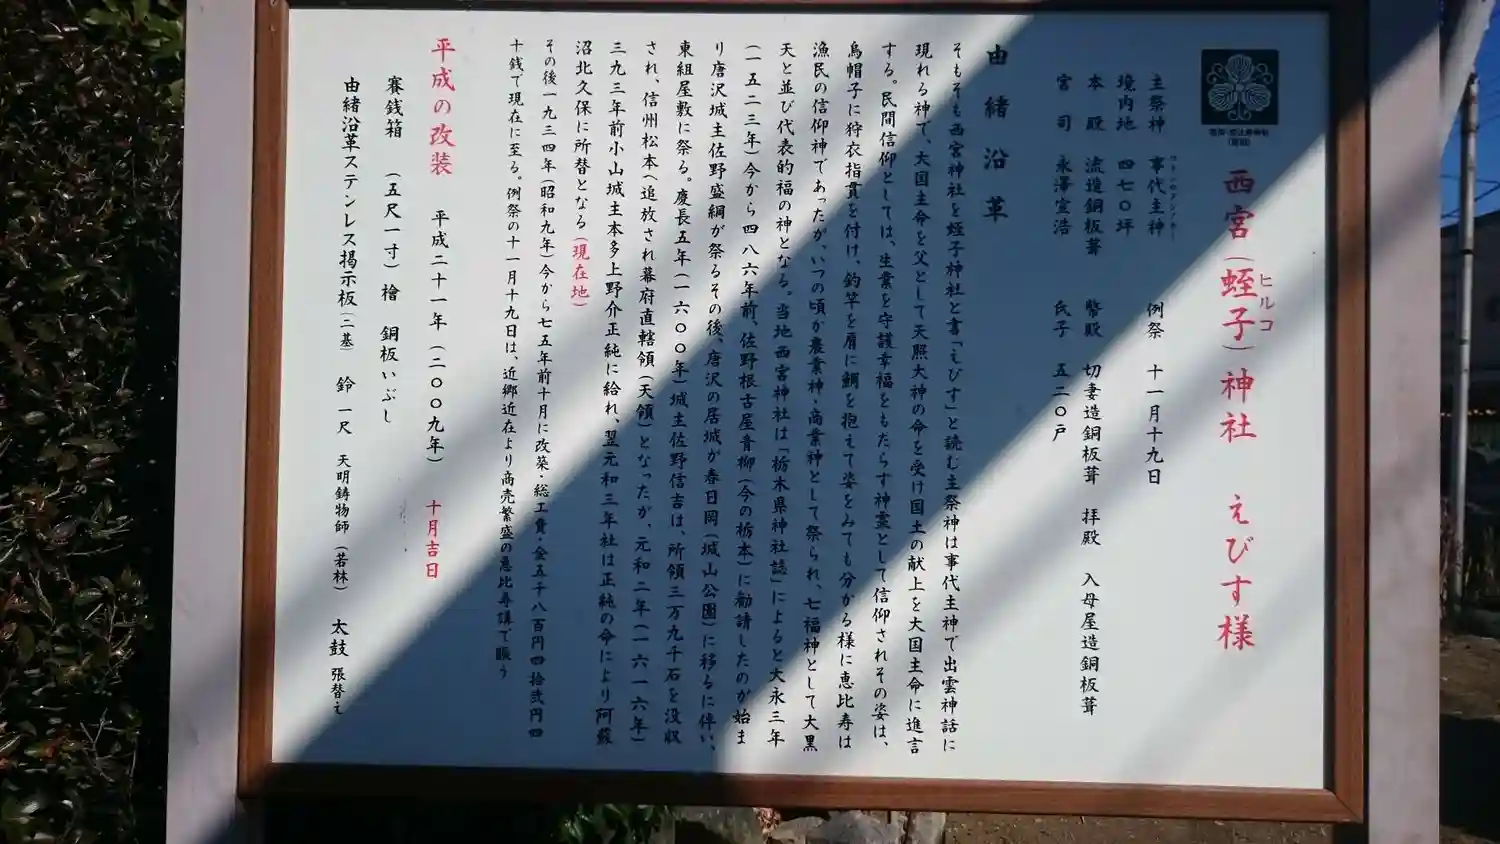 西宮(蛭子)神社 えびす様
ヒルコ
主祭神 事代主神 例祭 十一月十九日
境内地 四七〇坪
本殿 流造銅板葺 幣殿 切妻造銅板葺 拝殿 入母屋造銅板葺
宮司 永澤宣浩 氏子 五二〇戸
由緒沿革
そもそも西宮神社を蛭子神社と書「えびす」と読む主祭神は事代主神で出雲神話に
現れる神で、大国主命を父として天照大神の命を受け国土の献上を大国主命に進言
する。民間信仰としては、生業を守護幸福をもたらす神霊として信仰されその姿は、
烏帽子に狩衣指貫を付け、釣竿を肩に鯛を抱えて姿をみても分かる様に恵比寿は
漁民の信仰神であったが、いつの頃か農業神・商業神として祭られ、七福神として大黒
天と並び代表的福の神となる。当地西宮神社は「栃木県神社誌」によると大永三年
(一五二三年)今から四八六年前、佐野根古屋青柳(今の栃本)に勧請したのが始ま
り唐沢城主佐野盛綱が祭るその後、唐沢の居城が春日岡(城山公園)に移るに伴い、
東組屋敷に祭る。慶長五年(一六〇〇年)城主佐野信吉は、所領三万九千石を没収
され、信州松本へ追放され幕府直轄領(天領)となったが、元和二年(一六一六年)
三九三年前小山城主本多上野介正純に給れ、翌元和三年社は正純の命により阿蘇
沼北久保に所替となる(現在地)
その後一九三四年(昭和九年)今から七五年前十月に改築・総工費・金五千八百円四拾弐円四
十銭で現在に至る。例祭の十一月十九日は、近郷近在より商売繁盛の恵比寿講で賑う
平成の改装 平成二十一年(二〇〇九年) 十月吉日
賽銭箱 (五尺一寸)檜 銅板いぶし
由緒沿革ステンレス掲示板(二基) 鈴 一尺 天明鋳物師(若林) 太鼓 張替え